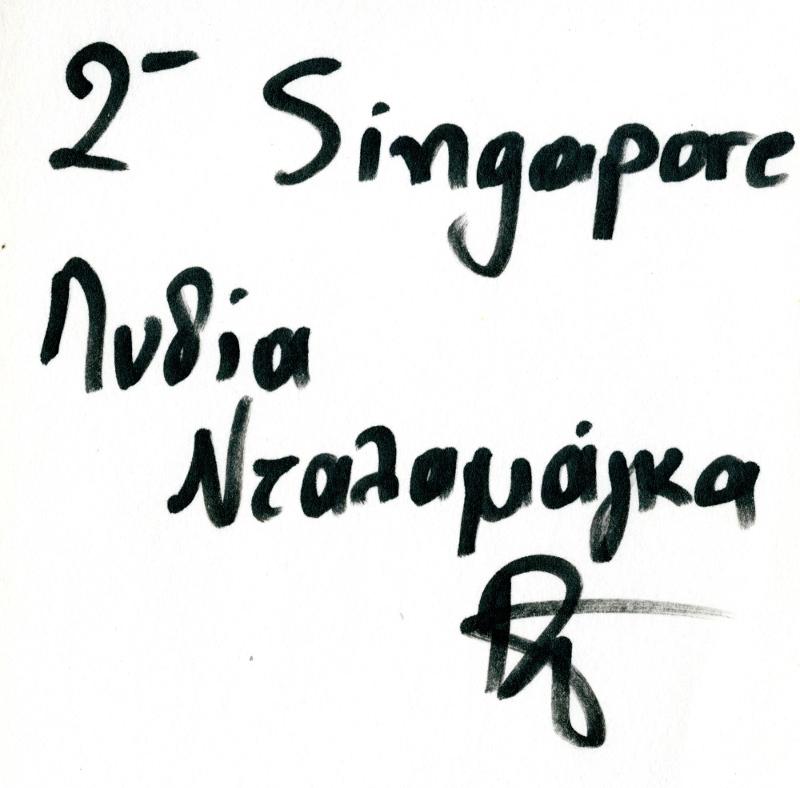 2- Singapore
Λυδία
Νταλαμάγκα